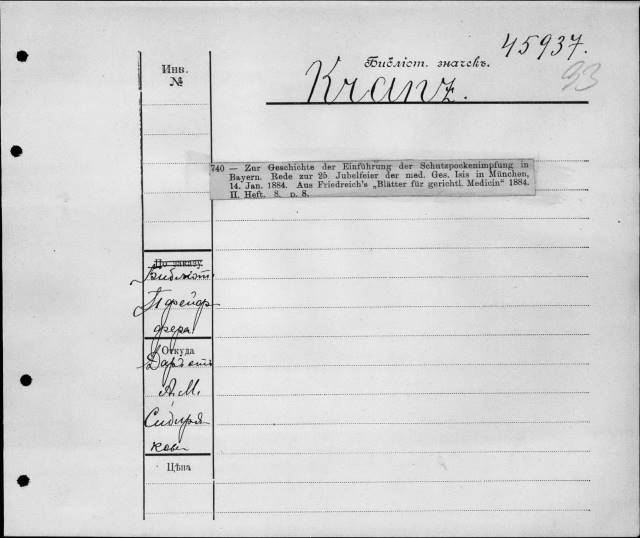 45937.
Библіот. значекъ.
93
Kranz.
Инв.
№
740 — Zur Geschichte der Einführung der Schutzpockenimpfung in
Bayern. Rede zur 25. Jubelfeier der med. Ges. Isis in München,
14. Jan. 1884. Aus Friedreich's „Blätter für gerichtl. Medicin“ 1884.
II. Heft. 8. p. 8.
По заказу
Библіот.
Пфейф-
фера
Откуда
Даръ отъ
А. М.
Сибиря-
кова
Цѣна